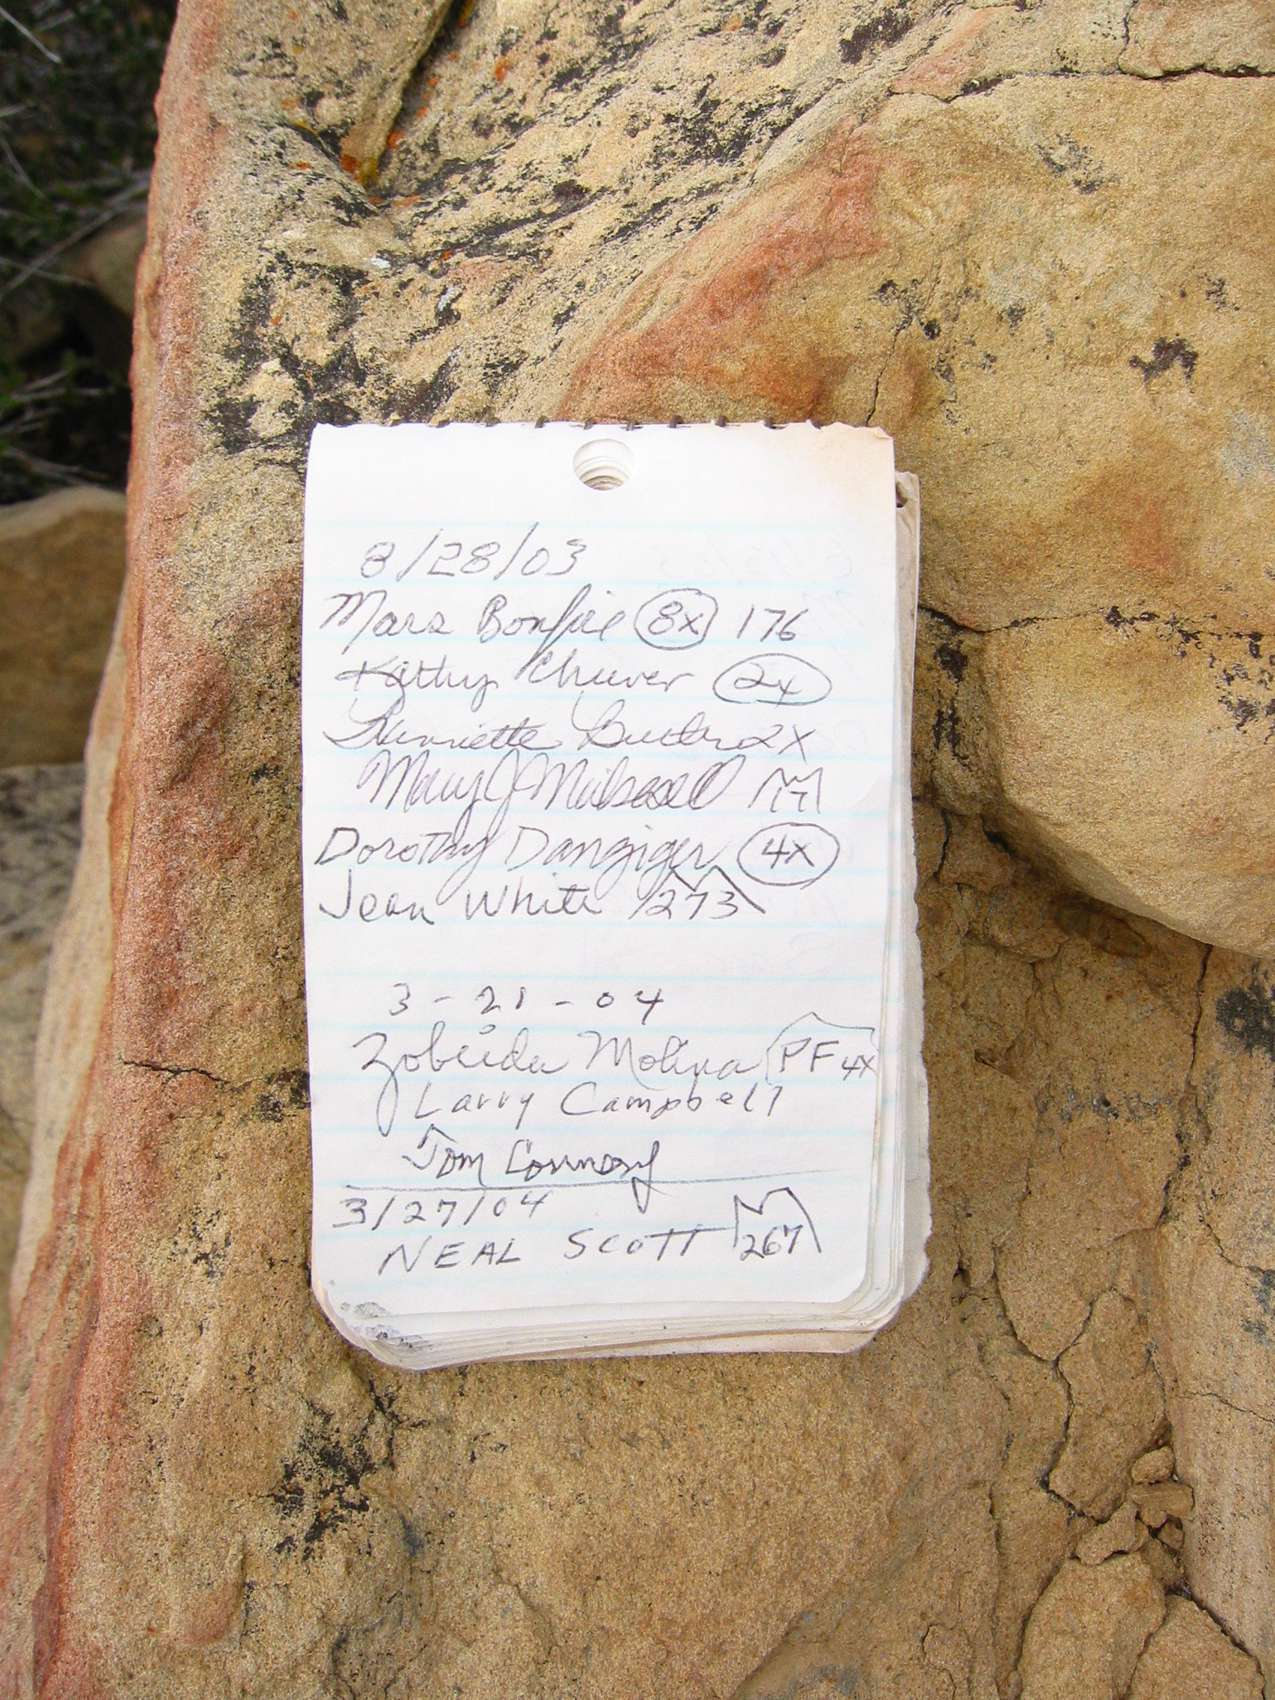 8/28/03
Mars Bonfire 8x 176
Kathy Cheever 2x
Henriette Butler 2X
Mary J 17
Dorothy Danziger 4x
Jean White 273
3-21-04
Zobeida Molina PF 4x
Larry Campbell
Tom Connery
3/27/04
NEAL SCOTT 267